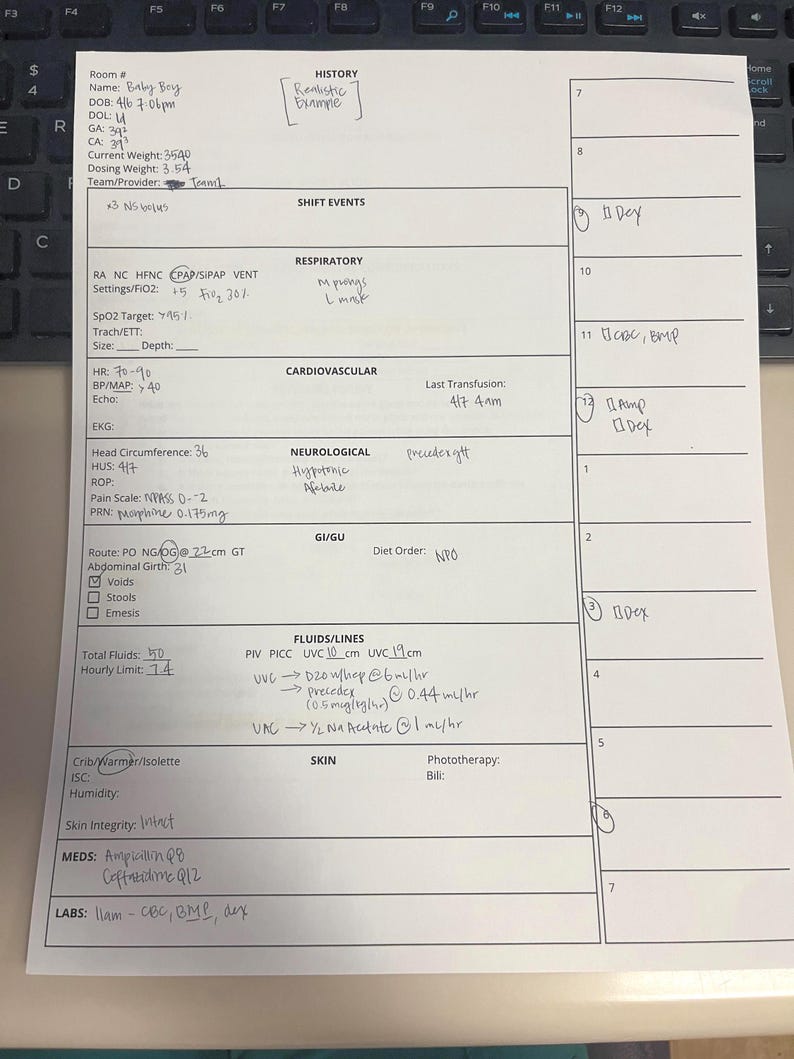 F3
F4
F5
F6
F7
F8
F9
F10
F11
F12
$
4
E
R
D
F
C
Home
Scroll
Lock
Room #
Name: Baby Boy
DOB: 4/6 7:06pm
DOL: 1d
GA: 39²
CA: 39³
Current Weight: 3540
Dosing Weight: 3.54
Team/Provider: Team 1
HISTORY
[Realistic
Example]
SHIFT EVENTS
x3 NS bolus
RESPIRATORY
RA NC HFNC CPAP/SiPAP VENT
Settings/FiO2: +5 FiO₂ 30%
M prongs
L mask
SpO2 Target: >95%
Trach/ETT:
Size: ____ Depth: ____
CARDIOVASCULAR
HR: 70-90
BP/MAP: >40
Echo:
EKG:
Last Transfusion:
4/7 4am
NEUROLOGICAL
Head Circumference: 36
HUS: 4/7
ROP:
Pain Scale: NPASS 0--2
PRN: Morphine 0.175mg
Hypotonic
Afebrile
precedex gtt
GI/GU
Route: PO NG/OG@ 22 cm GT
Abdominal Girth: 31
Voids
Stools
Emesis
Diet Order: NPO
FLUIDS/LINES
Total Fluids: 50
Hourly Limit: 7.4
PIV PICC UVC 10 cm UVC 19 cm
UVC → D20 w/hep @ 6 mL/hr
→ precedex @ 0.44 mL/hr
(0.5mcg/kg/hr)
UAC → 1/2 Na Acetate @ 1 mL/hr
SKIN
Crib/Warmer/Isolette
ISC:
Humidity:
Skin Integrity: Intact
Phototherapy:
Bili:
MEDS: Ampicillin Q8
Ceftazidime Q12
LABS: 11am - CBC, BMP, dex
7
8
9 Dex
10
11 CBC, BMP
12 Amp
Dex
1
2
3 Dex
4
5
6
7